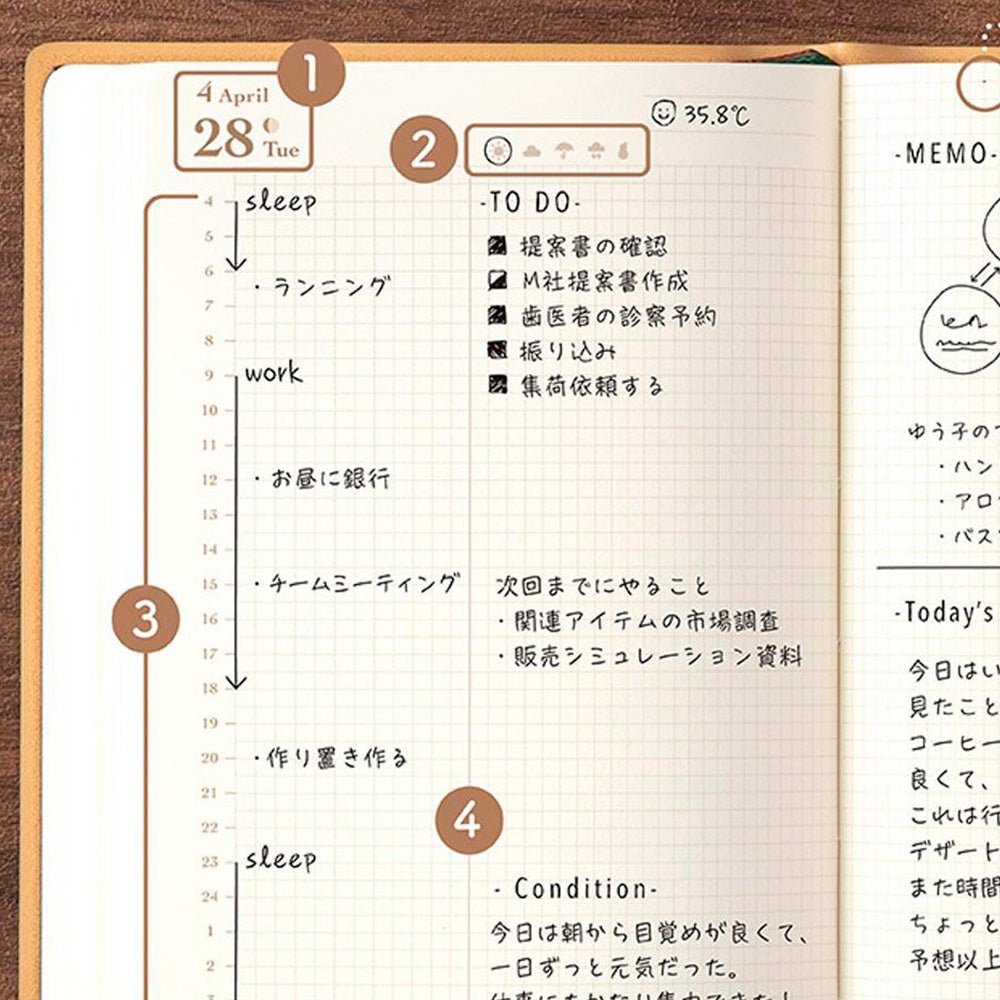 1
4 April
28 Tue
2
35.8℃
-TO DO-
提案書の確認
M社提案書作成
歯医者の診察予約
振り込み
集荷依頼する
3
4 sleep
5
6
・ランニング
7
8
9 work
10
11
12 ・お昼に銀行
13
14
15 ・チームミーティング
16
17
18
19
20 ・作り置き作る
21
22
23 sleep
24
1
2
次回までにやること
・関連アイテムの市場調査
・販売シミュレーション資料
4
- Condition-
今日は朝から目覚めが良くて、
一日ずっと元気だった。
-MEMO-
ゆう子の
・ハン
・アロ
・バス
-Today's
今日はい
見たこと
コーヒー
良くて、
これは行
デザート
また時間
ちょっと
予想以上